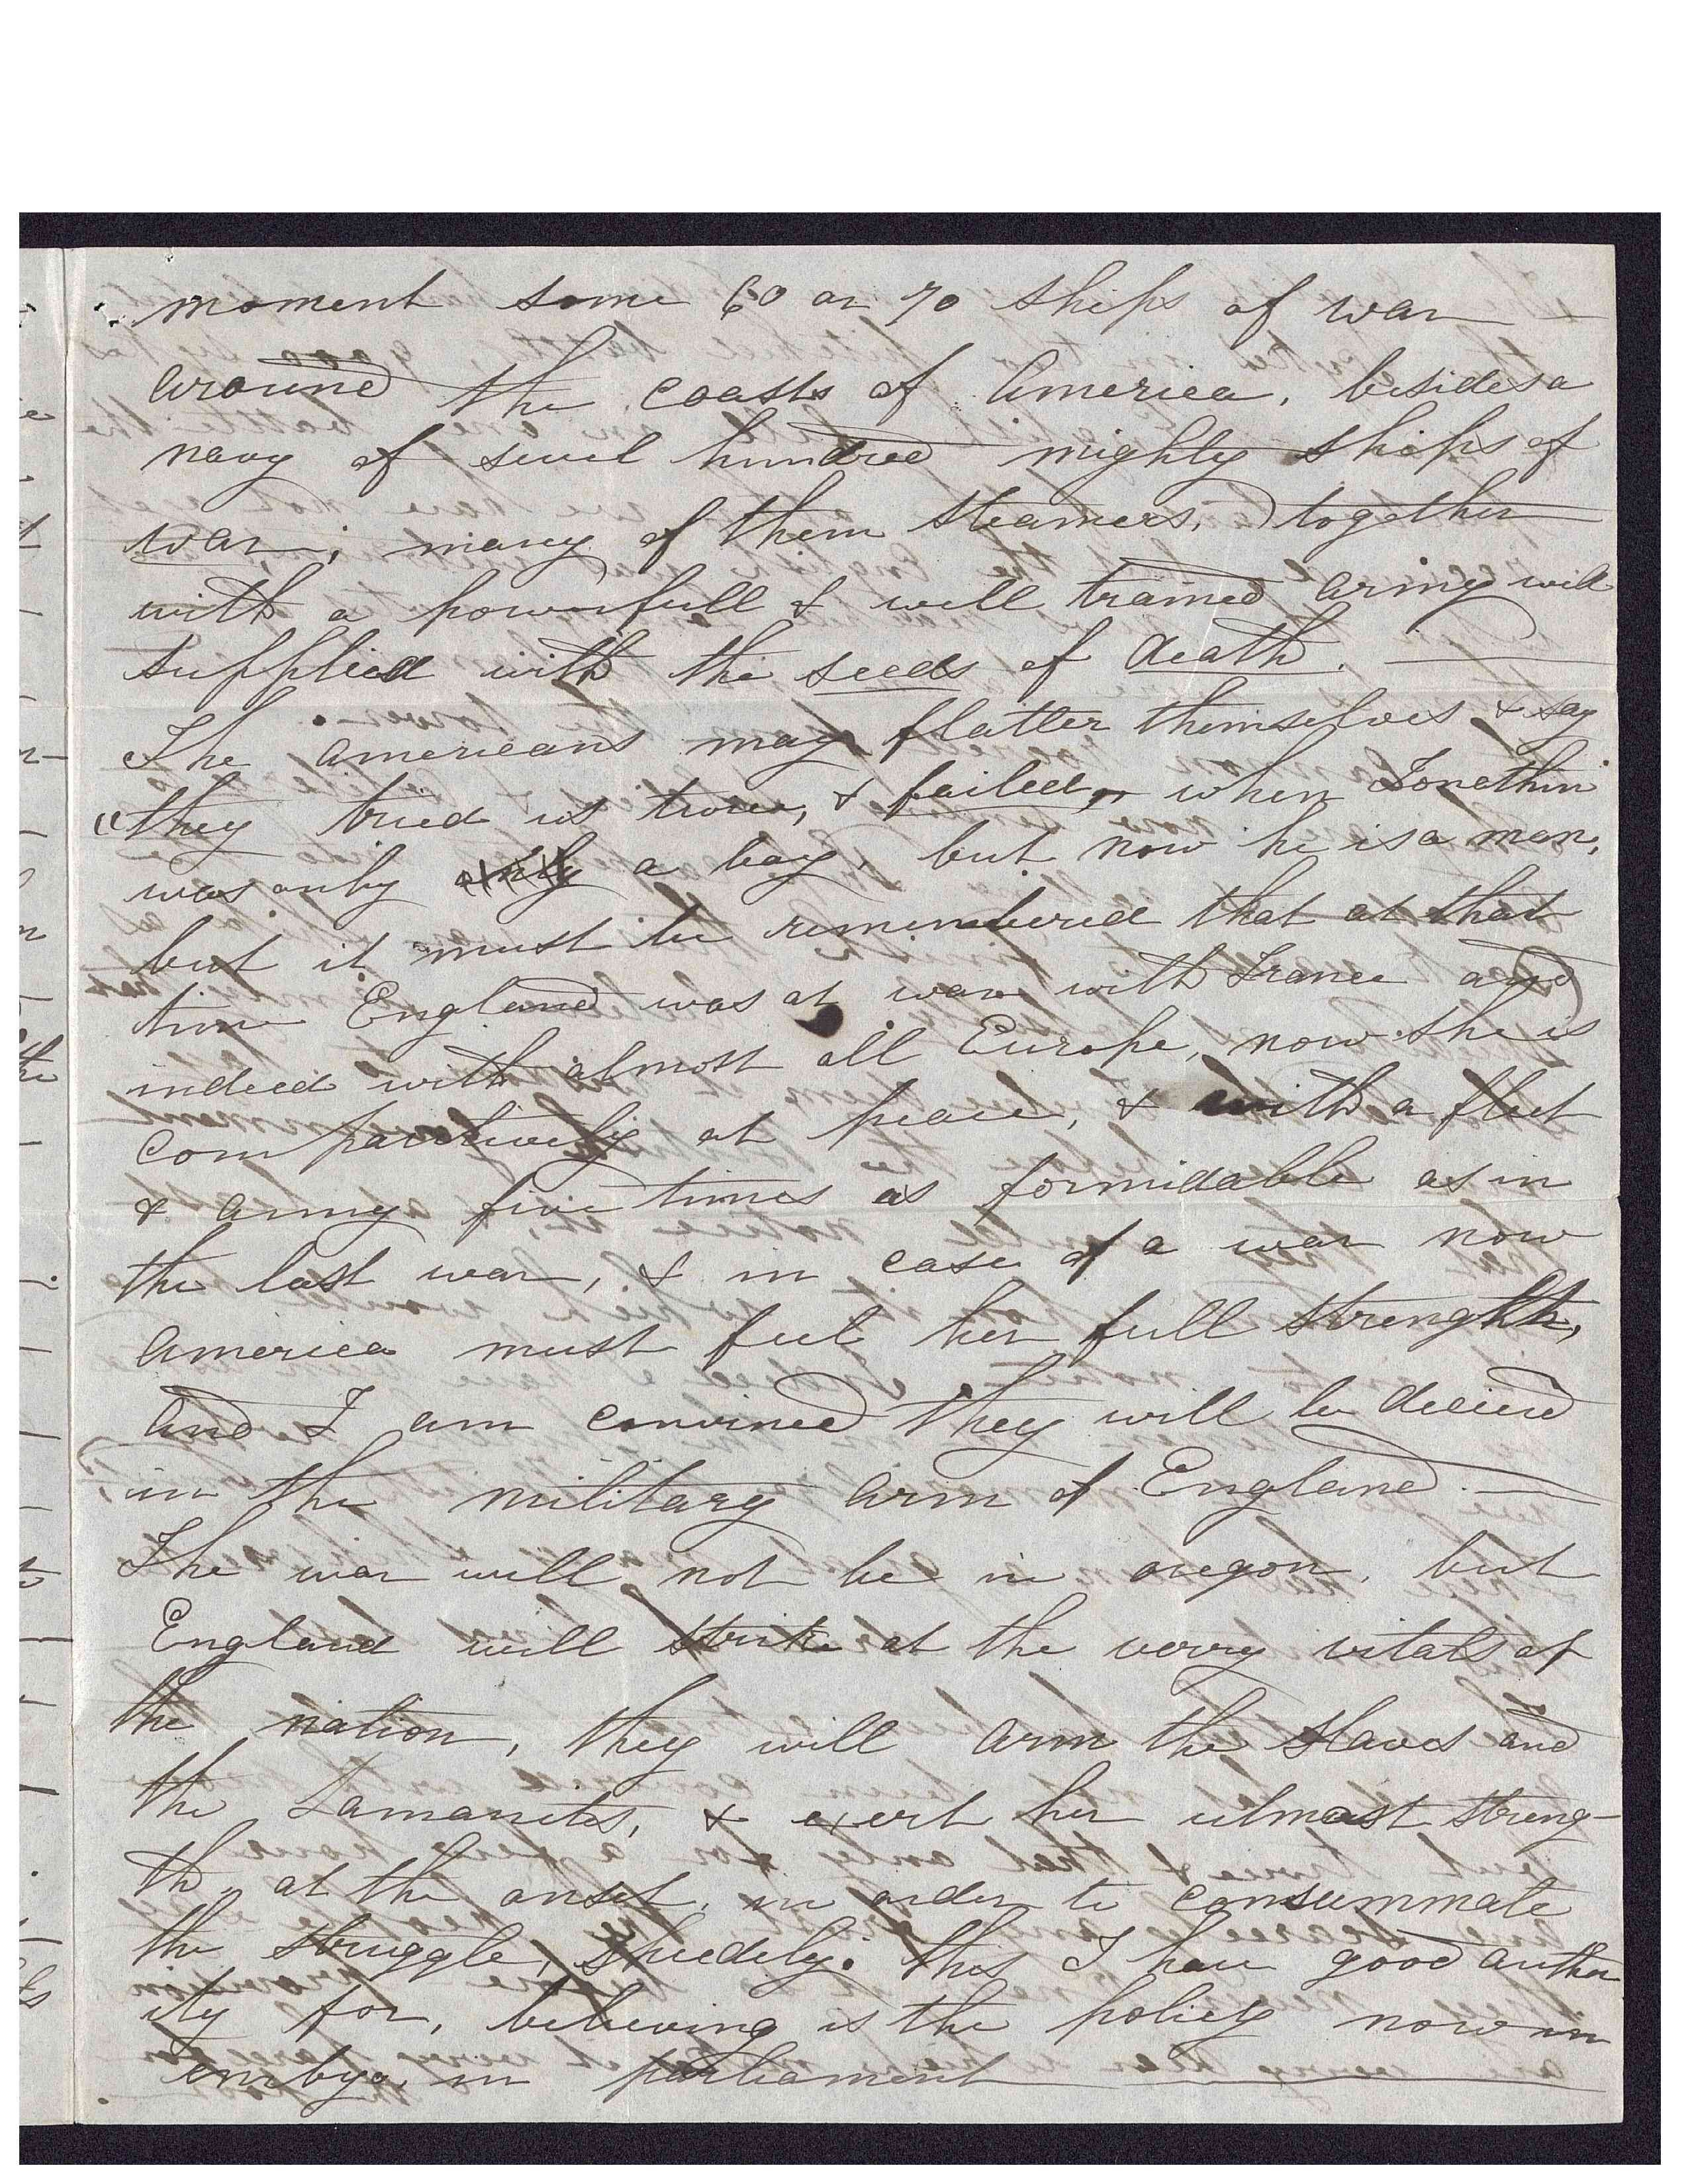 moment some 60 or 70 ships of war —
around the coasts of America, besides a
navy of sevel hundred mighty ships of
war; many of them steamers, together
with a powerfull & well trained army well
supplied with the seeds of death. —
The americans may flatter themselves & say
"they tried us twice, & failed, when Jonethin
was only only a boy, but now he is a man,
but it must be remembered that at that
time England was at war with France and
indeed with almost all Europe, now she is
comparitively at peace, & with a fleet
& army five times as formidable as in
the last war, & in case of a war now
America must feel her full strenghth,
and I am convinced they will be deceived
in the military arm of England. —
The war will not be in oregon, but
England will strike at the verry vitals of
the nation, they will arm the slaves and
the Lamanites, & exert her utmost streng-
th, at the onset, in order to consummate
the struggle, speedily. this I have good author
ity for, believing is the policy now in
embyo, in parliament —